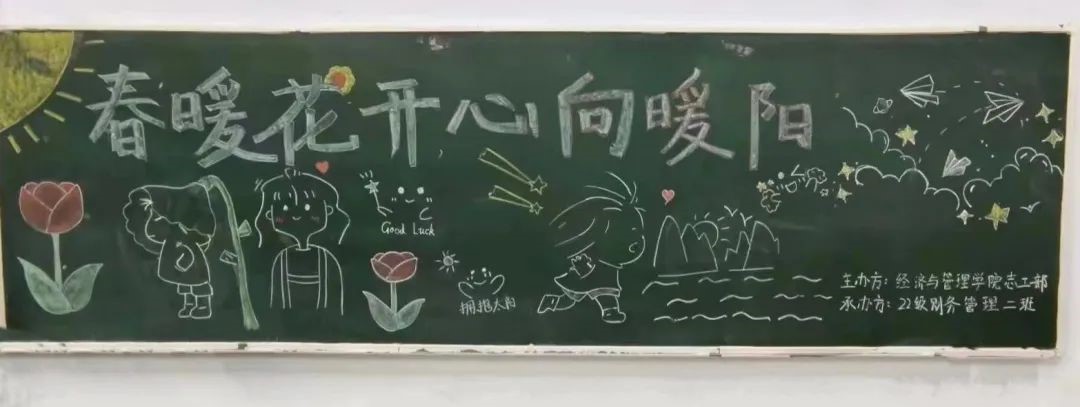 春暖花开心向暖阳
Good Luck
拥抱太阳
主办方：经济与管理学院志工部
承办方：22级财务管理二班